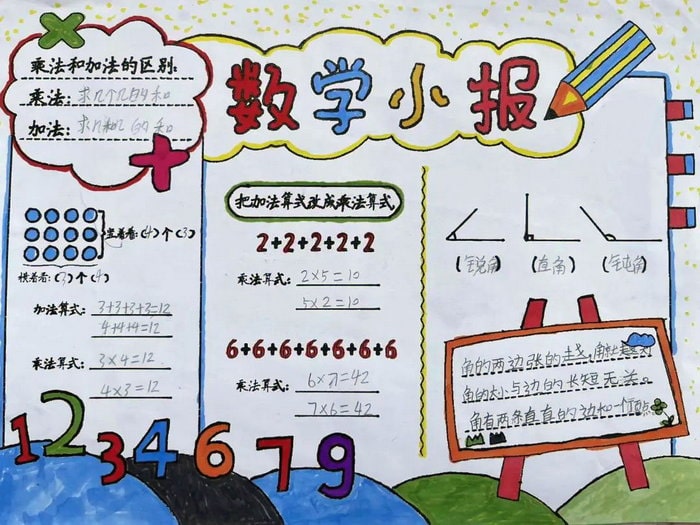 数学小报
乘法和加法的区别:
乘法: 求几个几的和
加法: 求几和几的和
竖着看:(4)个(3)
横着看:(3)个(4)
加法算式: 3+3+3+3=12
4+4+4=12
乘法算式: 3×4=12
4×3=12
把加法算式改成乘法算式
2+2+2+2+2
乘法算式: 2×5=10
5×2=10
6+6+6+6+6+6+6
乘法算式: 6×7=42
7×6=42
(锐角) (直角) (钝角)
角的两边张的越大,角就越大
角的大小与边的长短无关。
角有两条直直的边和一个顶点
1 2 3 4 6 7 9